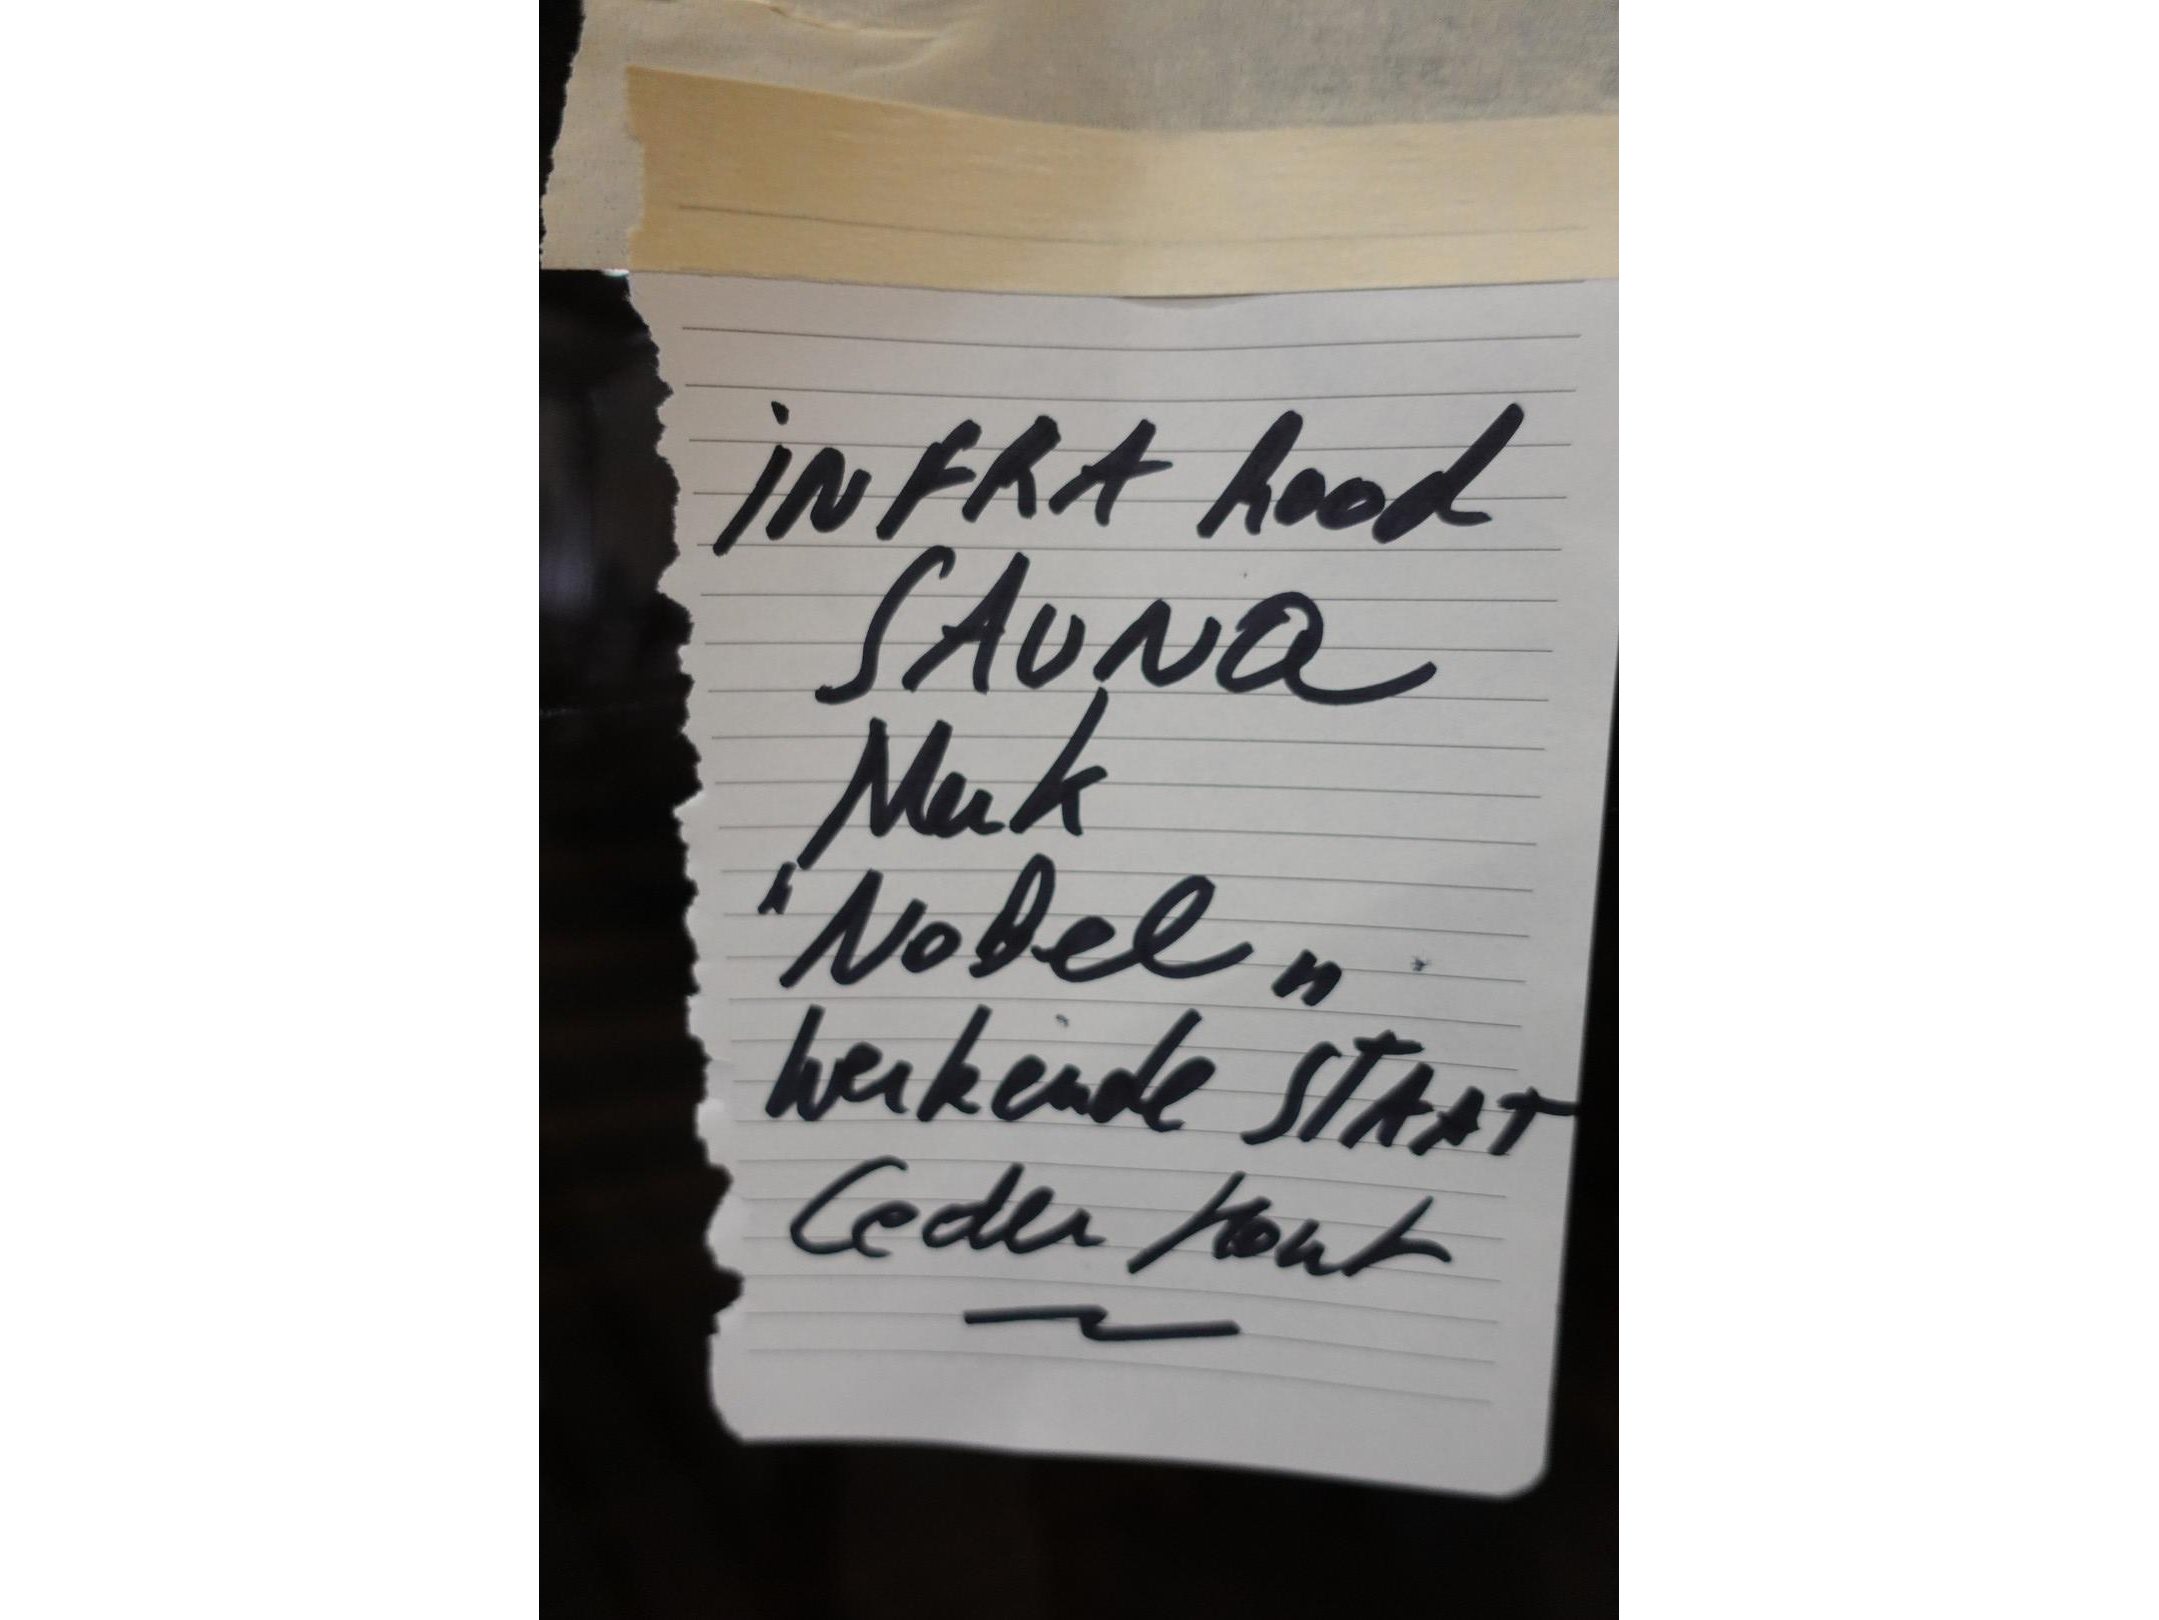 iNFRA hood
SAUNa
Merk
"NoBel"
werkende STAAT
Ceder Hout